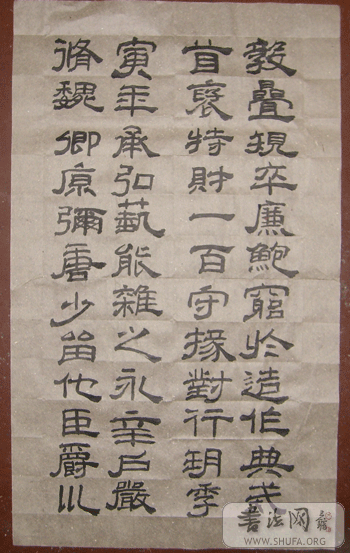 敦疊規卒廉鮑窮於造作典武
首裒特財一百守掾對行胡季
寅年承弘藝能雜之永辛戶嚴
脩魏卿原彌唐少留他臣爵以
書法网
WWW.SHUFA.ORG